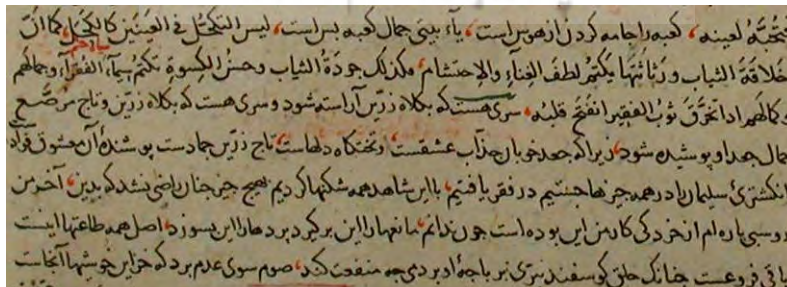 محبّةٌ لعينه، کعبه را جامه کردن از هوس است، یاء بیتی جمال کعبه بس است، لیس التکحّل فی العینین کالکحل، کما انّ
خلاقة الثیاب و رثاثتها یکتم لطف الغناء والاحتشام، فکذلک جودة الثیاب وحسن الکسوة تکتم سیماء الفقراء وجمالهم
وکمالهم اذا تخرّق ثوب الفقیر انفتح قلبه، سری هست که بکلاه زرّین آراسته شود و سری هست که بکلاه زرّین و تاج مرصّع
جمال جعد او پوشیده شود، زیرا که جعد خوبان جذّاب عشقست، او تختکاه دلهاست، تاج زرّین جمادست پوشنده آن معشوق فوآد
انکشتری سلیمان را در همه چیزها جستیم در فقر یافتیم، با این شاهد همه شکنها کردیم بهیچ چیز چنان راضی نشد که بدین، آخر من
روسبی باره ام از خردکی کار من این بوده است چون ندانم، مانعها را این برکیرد پردها را این بسوزد، اصل همه طاعتها اینست
باقی فروعست چنانک حلق کوسفند نبرّی بر پاجهٔ او در دمی چه منفعت کند، صوم سوی عدم برد که آخر این خوشیها آنجاست